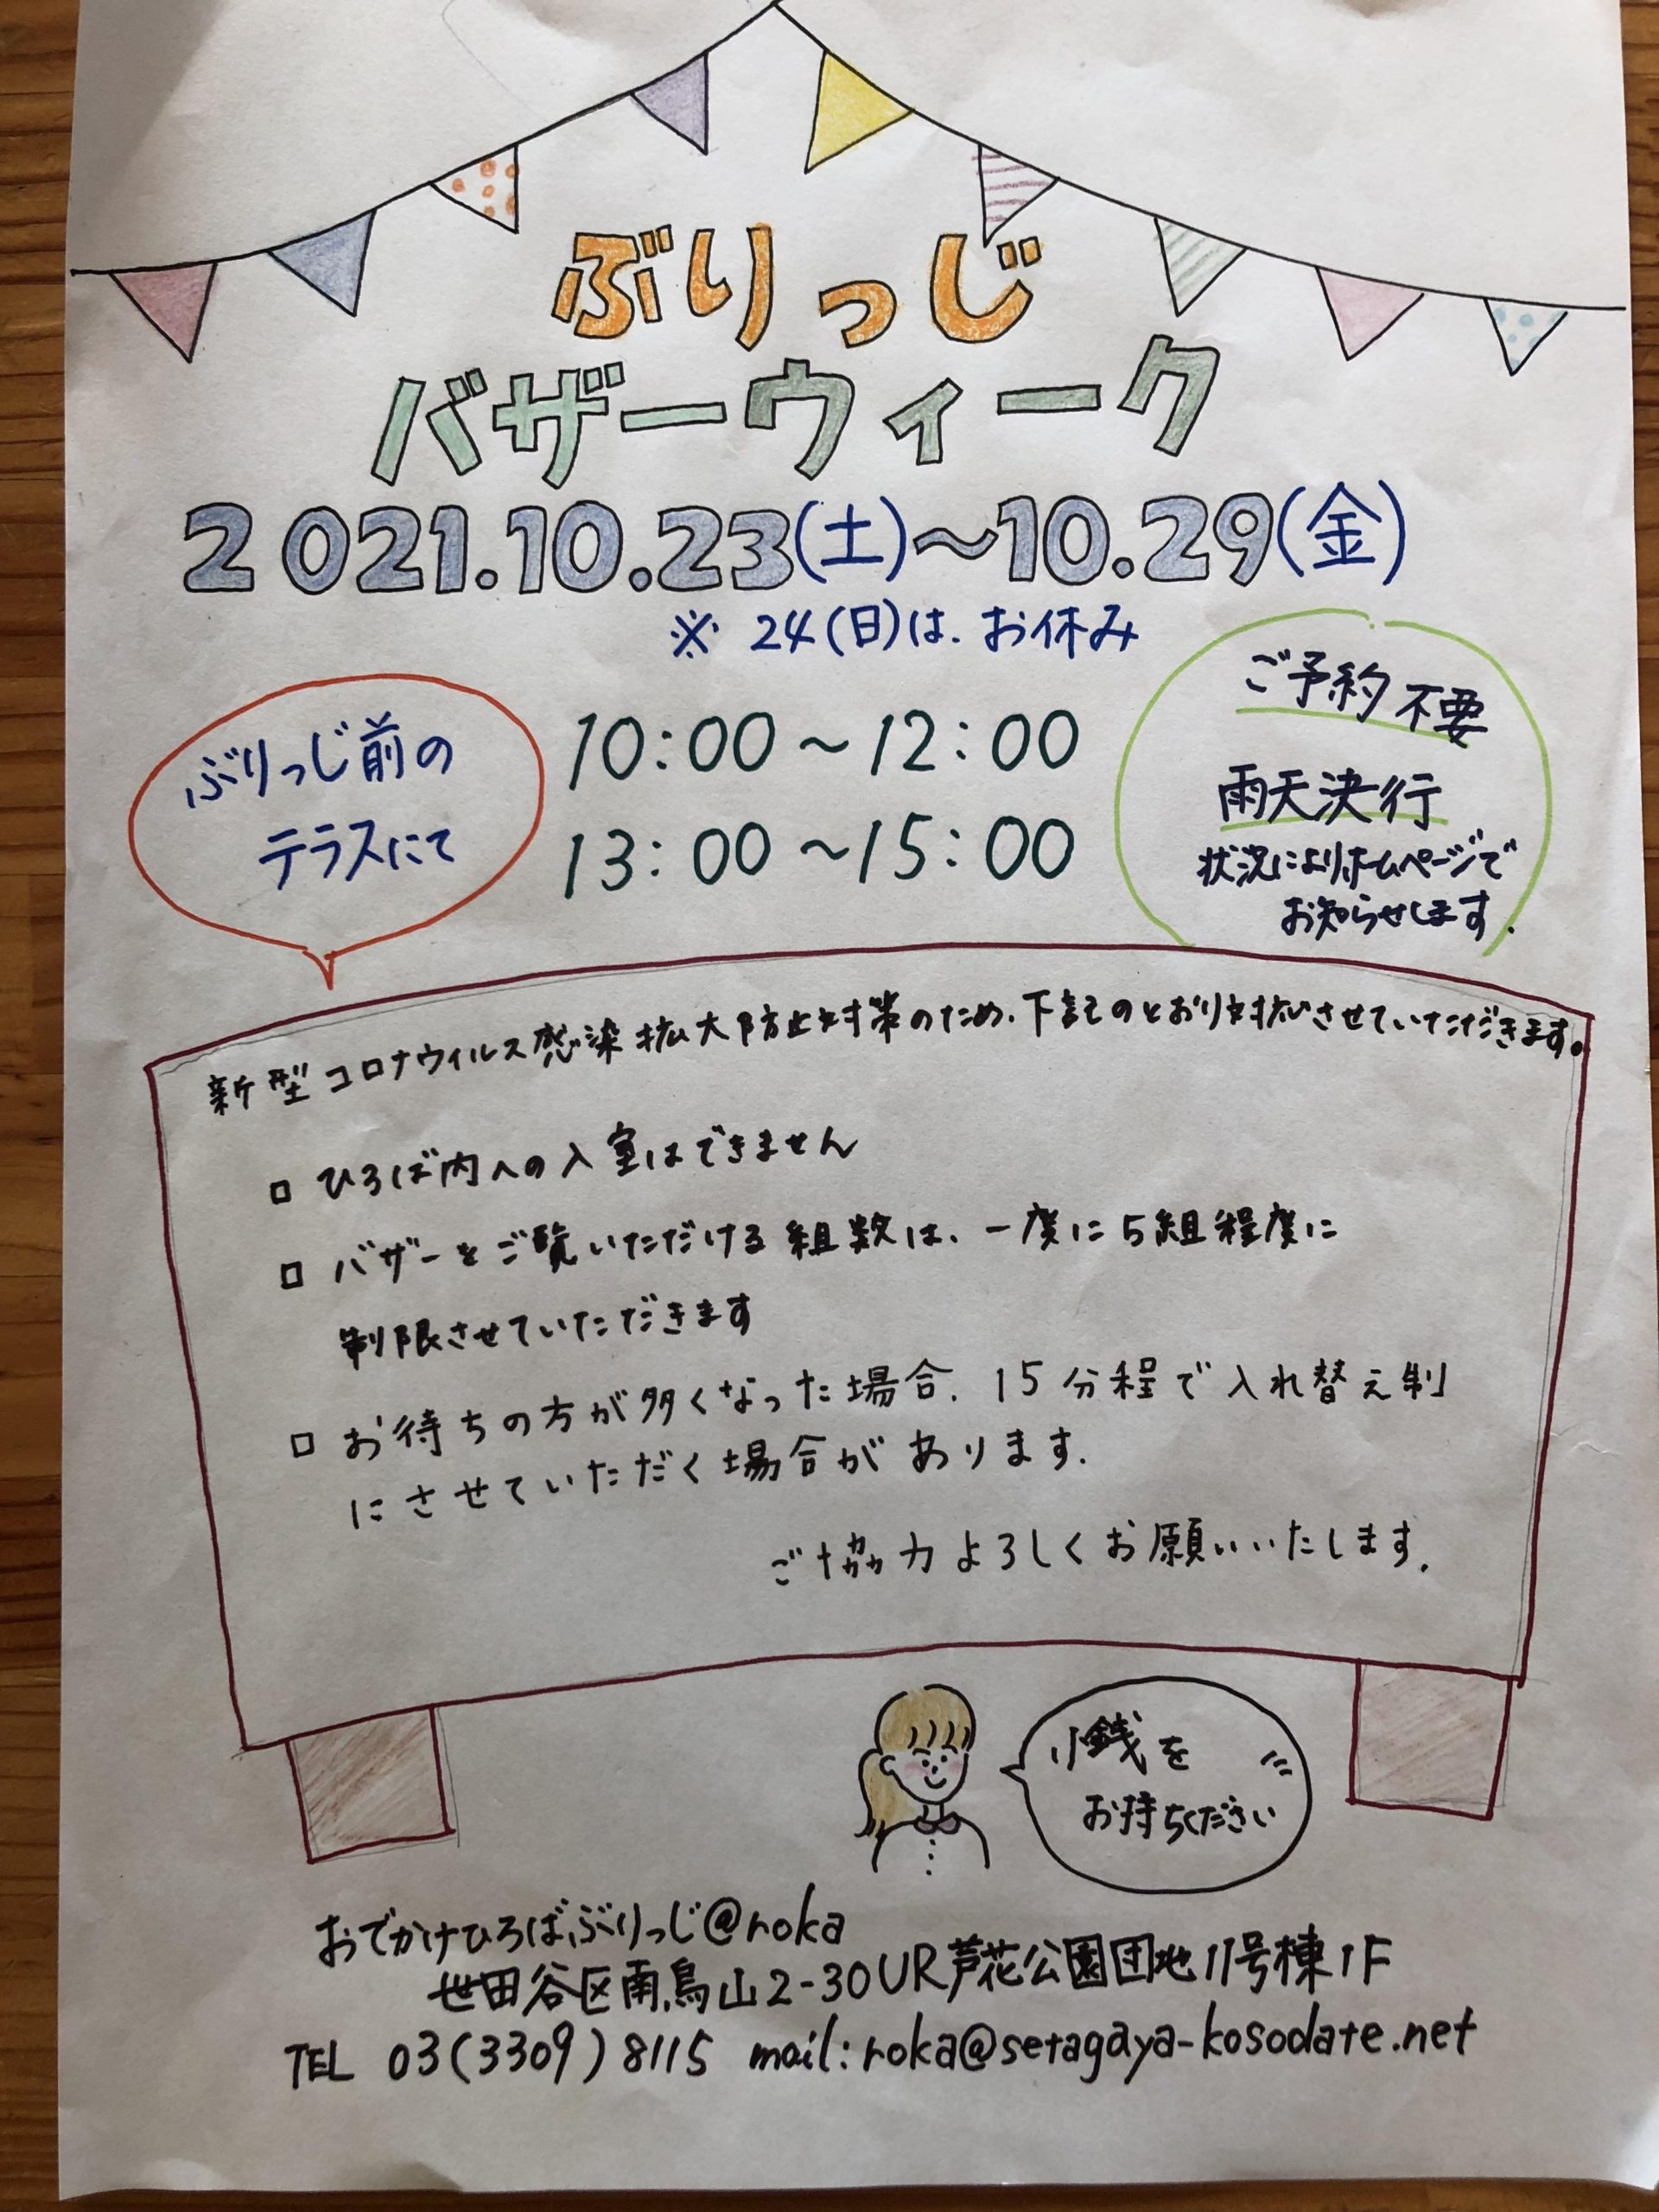 ぶりっじ
バザーウィーク
2021.10.23(土)~10.29(金)
※ 24(日)は、お休み
ぶりっじ前の
テラスにて
10:00~12:00
13:00~15:00
ご予約不要
雨天決行
状況によりホームページで
お知らせします.
新型コロナウィルス感染拡大防止対策のため、下記のとおり対応させていただきます。
□ ひろば内への入室はできません
□ バザーをご覧いただける組数は、一度に5組程度に
制限させていただきます
□ お待ちの方が多くなった場合、15分程で入れ替え制
にさせていただく場合があります.
ご協力よろしくお願いいたします.
小銭を
お持ちください
おでかけひろばぶりっじ@roka
世田谷区南烏山2-30UR芦花公園団地11号棟1F
TEL 03(3309)8115 mail:roka@setagaya-kosodate.net